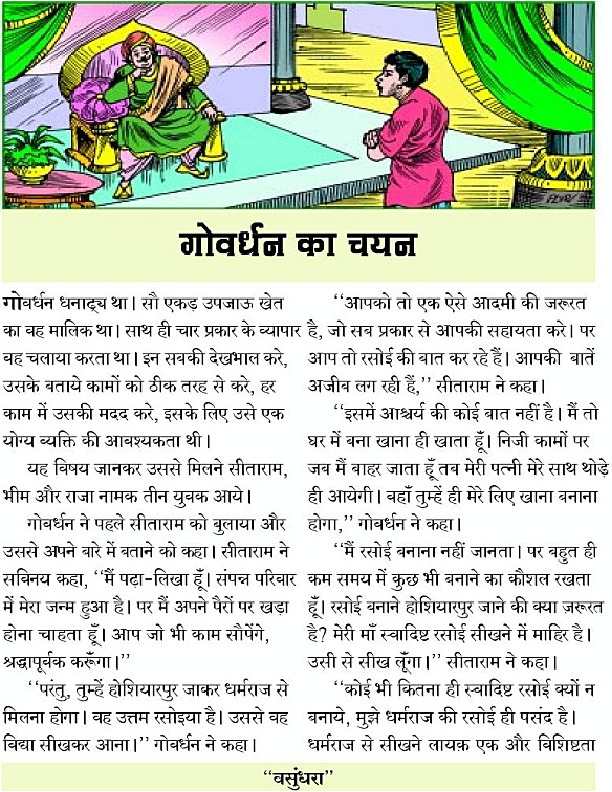 गोवर्धन का चयन
गोवर्धन धनाढ्य था। सौ एकड़ उपजाऊ खेत
का वह मालिक था। साथ ही चार प्रकार के व्यापार
वह चलाया करता था। इन सबकी देखभाल करे,
उसके बताये कामों को ठीक तरह से करे, हर
काम में उसकी मदद करे, इसके लिए उसे एक
योग्य व्यक्ति की आवश्यकता थी।
यह विषय जानकर उससे मिलने सीताराम,
भीम और राजा नामक तीन युवक आये।
गोवर्धन ने पहले सीताराम को बुलाया और
उससे अपने बारे में बताने को कहा। सीताराम ने
सविनय कहा, ‘‘मैं पढ़ा-लिखा हूँ। संपन्न परिवार
में मेरा जन्म हुआ है। पर मैं अपने पैरों पर खड़ा
होना चाहता हूँ। आप जो भी काम सौपेंगे,
श्रद्धापूर्वक करूँगा।’’
‘‘परंतु, तुम्हें होशियारपुर जाकर धर्मराज से
मिलना होगा। वह उत्तम रसोइया है। उससे वह
विद्या सीखकर आना।’’ गोवर्धन ने कहा।
‘‘आपको तो एक ऐसे आदमी की जरूरत
है, जो सब प्रकार से आपकी सहायता करे। पर
आप तो रसोई की बात कर रहे हैं। आपकी बातें
अजीब लग रही हैं,’’ सीताराम ने कहा।
‘‘इसमें आश्चर्य की कोई बात नहीं है। मैं तो
घर में बना खाना ही खाता हूँ। निजी कामों पर
जब मैं बाहर जाता हूँ तब मेरी पत्नी मेरे साथ थोड़े
ही आयेगी। वहाँ तुम्हें ही मेरे लिए खाना बनाना
होगा,’’ गोवर्धन ने कहा।
‘‘मैं रसोई बनाना नहीं जानता। पर बहुत ही
कम समय में कुछ भी बनाने का कौशल रखता
हूँ। रसोई बनाने होशियारपुर जाने की क्या ज़रूरत
है? मेरी माँ स्वादिष्ट रसोई सीखने में माहिर है।
उसी से सीख लूँगा।’’ सीताराम ने कहा।
‘‘कोई भी कितना ही स्वादिष्ट रसोई क्यों न
बनाये, मुझे धर्मराज की रसोई ही पसंद है।
धर्मराज से सीखने लायक़ एक और विशिष्टता
‘‘वसुंधरा’’